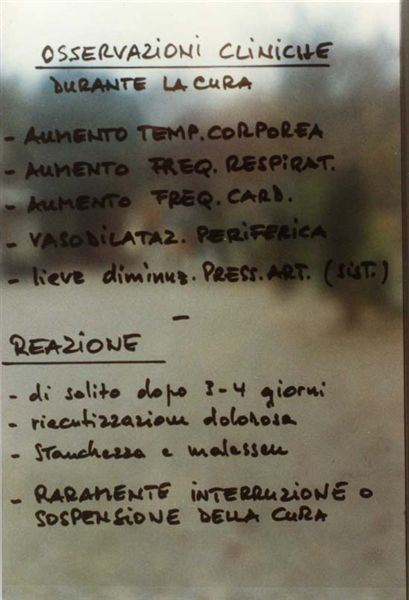 OSSERVAZIONI CLINICHE
DURANTE LA CURA
- AUMENTO TEMP. CORPOREA
- AUMENTO FREQ. RESPIRAT.
- AUMENTO FREQ. CARD.
- VASODILATAZ. PERIFERICA
- lieve diminuz. PRESS. ART. (SIST.)
-
REAZIONE
- di solito dopo 3-4 giorni
- riacutizzazione dolorosa
- stanchezza e malessere
- RARAMENTE INTERRUZIONE O
SOSPENSIONE DELLA CURA